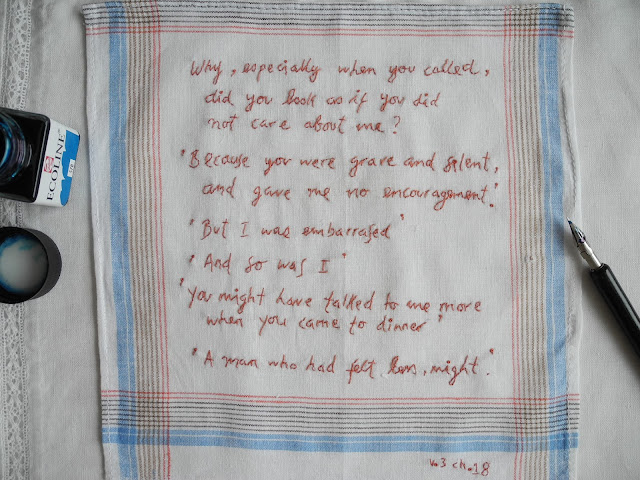 Why, especially when you called,
did you look as if you did
not care about me?
"Because you were grave and silent,
and gave me no encouragement."
"But I was embarrassed"
"And so was I"
"You might have talked to me more
when you came to dinner"
"A man who had felt less, might."
v.3 ch.18
ECOLINE